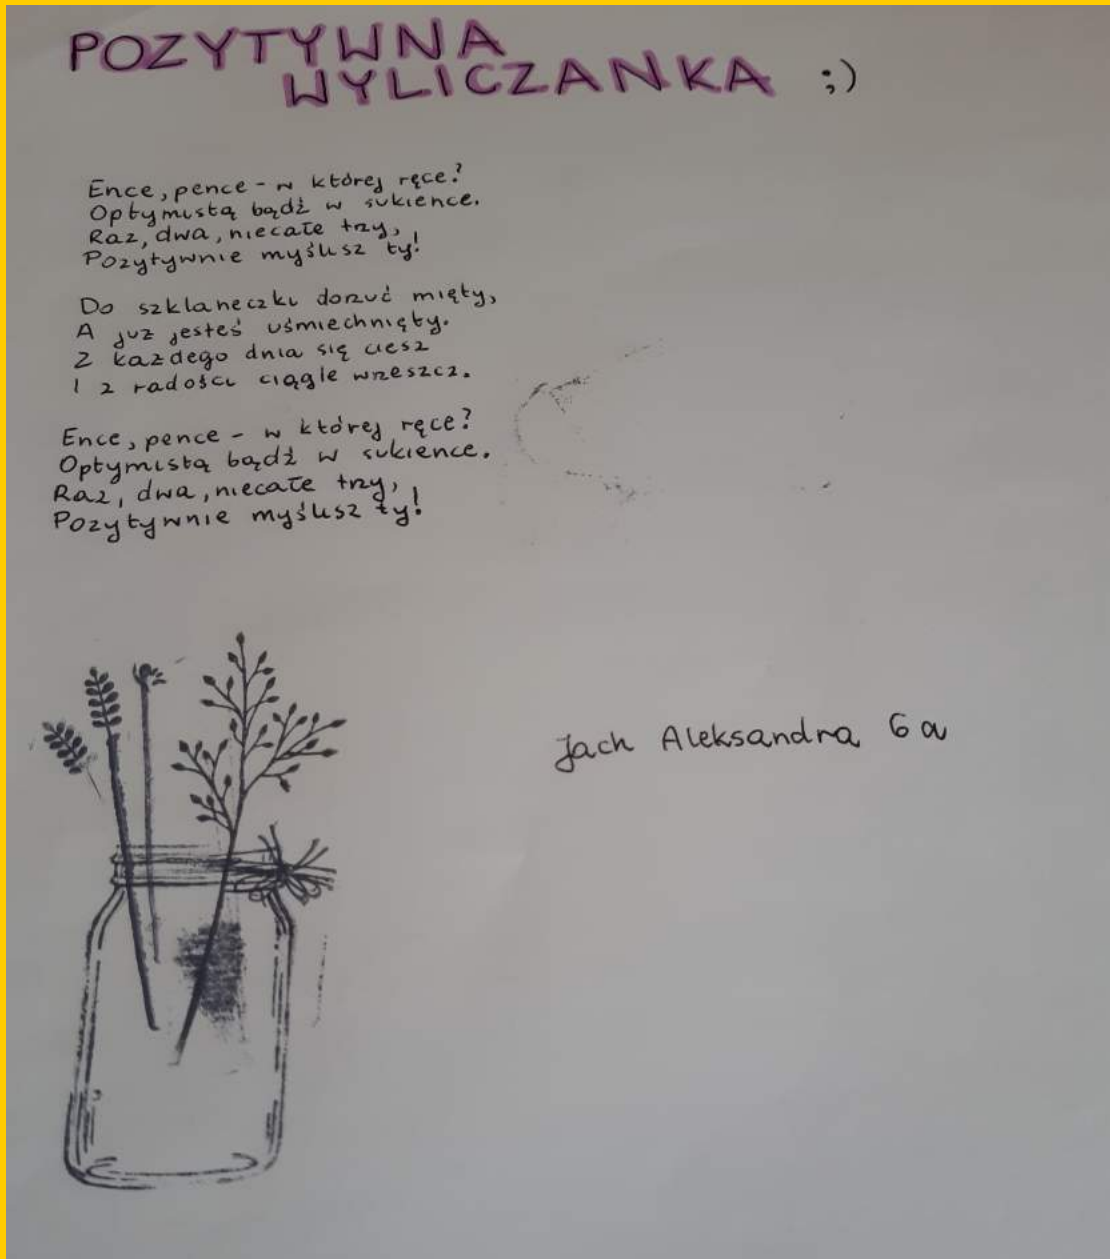 POZYTYWNA
WYLICZANKA ;)
Ence, pence - w której ręce?
Optymistą bądź w sukience.
Raz, dwa, niecałe trzy,
Pozytywnie myślisz ty!
Do szklaneczki dorzuć mięty,
A już jesteś uśmiechnięty.
Z każdego dnia się ciesz
I z radości ciągle wrzeszcz.
Ence, pence - w której ręce?
Optymistą bądź w sukience.
Raz, dwa, niecałe trzy,
Pozytywnie myślisz ty!
Jach Aleksandra 6a